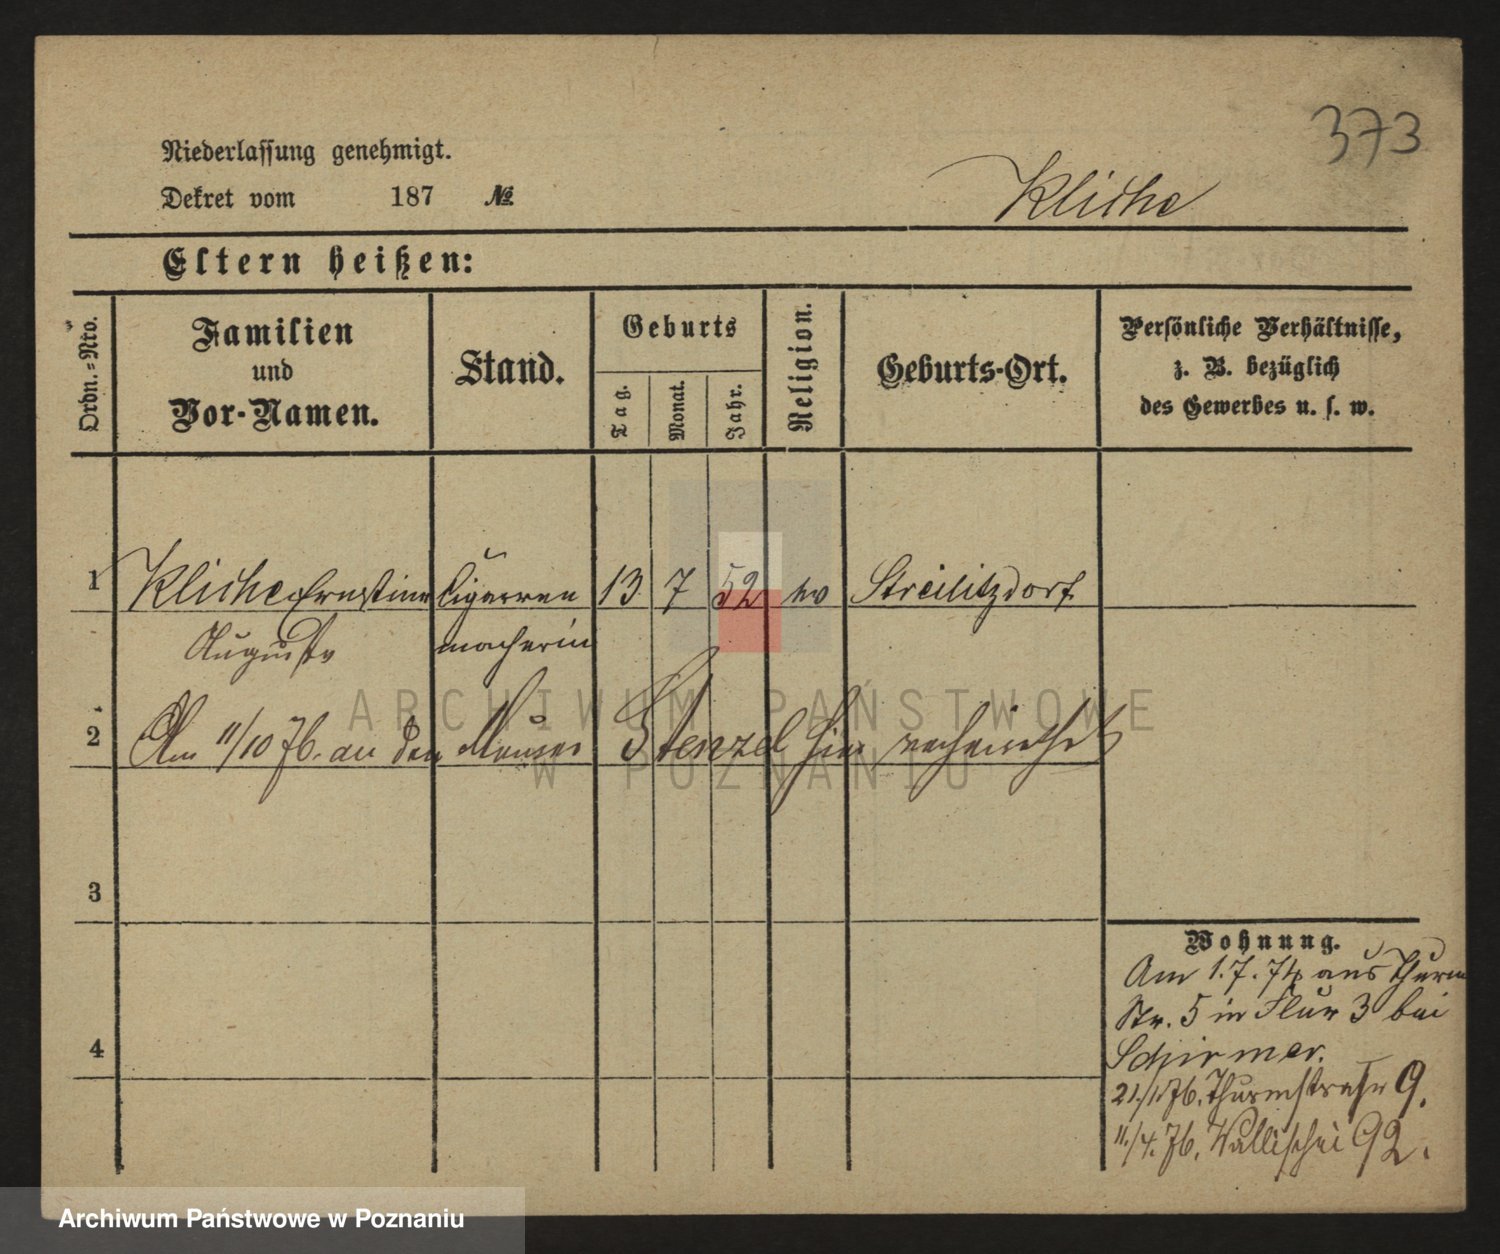 373
Niederlassung genehmigt.
Dekret vom 187 №
Kliche
Eltern heißen:
Ordn.-Nro.
Familien
und
Vor-Namen.
Stand.
Geburts
Tag.
Monat.
Jahr.
Religion.
Geburts-Ort.
Persönliche Verhältnisse,
z. B. bezüglich
des Gewerbes u. s. w.
1 Kliche Ernstine Cigarren 13 7 52 ev Streilitzdorf
Auguste macherin
2 Am 11/10 76. an den Stenzel hier verheirathet
3
4
Wohnung.
Am 1.7.74 aus Thurm
Str. 5 in Flur 3 bei
Schirmer.
21/1 76. Thurmstraße 9.
11./4. 76. Wallischei 92.
ARCHIWUM PAŃSTWOWE
W POZNANIU
Archiwum Państwowe w Poznaniu